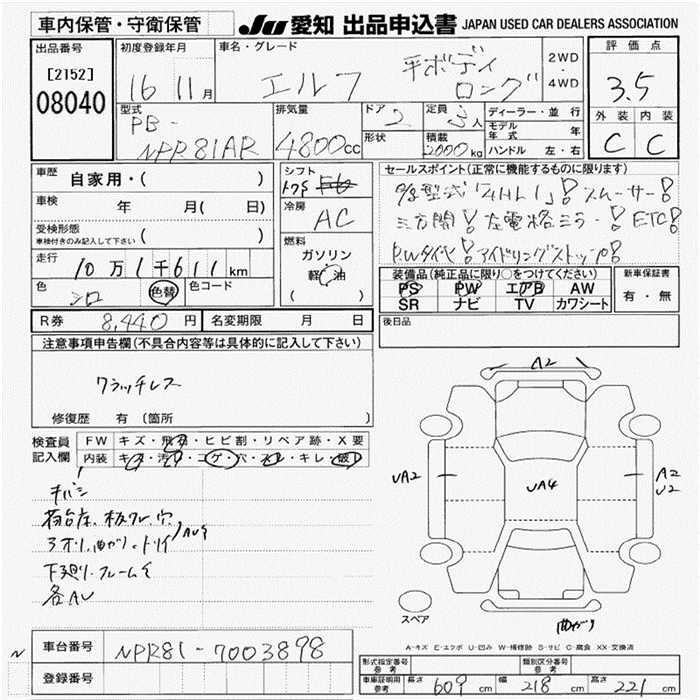 車内保管・守衛保管
JU 愛知 出品申込書 JAPAN USED CAR DEALERS ASSOCIATION
出品番号
[2152]
08040
初度登録年月
16 11月
車名・グレード
エルフ 平ボディ ロング
2WD
4WD
評価点
3.5
外装 内装
C C
型式
PB-
NPR81AR
排気量
4800cc
ドア
2
形状
定員
3人
積載
2000kg
ディーラー・並行
モデル年式 年
ハンドル 左・右
車歴
自家用・( )
車検
年 月( 日)
受検形態
車検付きのみ記入して下さい ( )
走行
10万1千611km
色
シロ
色替
色コード
R券 8,440円 名変期限 月 日
シフト
冷房
AC
燃料
ガソリン
軽油
( )
セールスポイント(正常に機能するものに限ります)
型式「4HL1」! スムーサー!
三方開! 左電格ミラー! ETC!
P.Wタイヤ! アイドリングストップ!
装備品(純品品に限り○をつけてください)
PS PW エアB AW
SR ナビ TV カワシート
新車保証書
有・無
後日品
注意事項申告欄(不具合内容等は具体的に記入して下さい)
クラッチレス
修復歴 有 (箇所 )
検査員記入欄
FW キズ・飛石・ヒビ割・リペア跡・X要
内装 キズ・汚れ・コゲ・穴・スレ・キレ・破れ
キバミ
荷台床、板ワレ、穴
3オリ、曲がり、トリイ
AUS
下廻り、フレームS
各AU
A2
UA2
UA4
A2
U2
スペア
曲がり
A-キズ E-エクボ U-凹み W-補修跡 S-サビ C-腐食 XX-交換済
N
車台番号 NPR81-7003898
登録番号
形式指定番号 参考
類別区分番号 参考
車庫証明用 参考 長さ 609 cm 幅 218 cm 高さ 221 cm